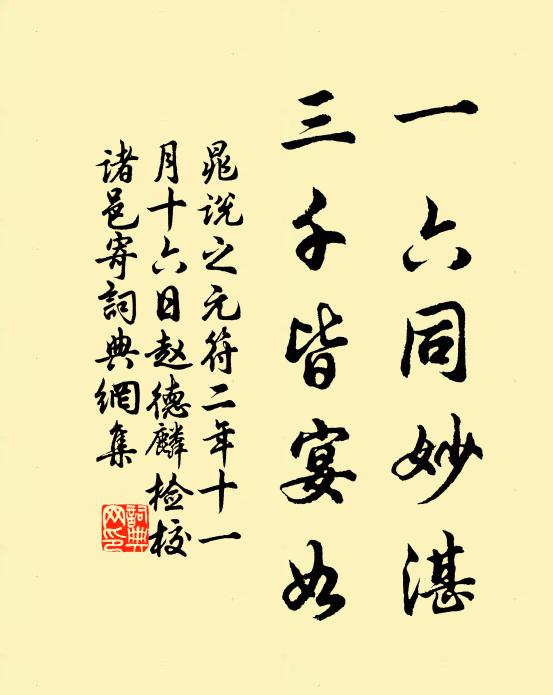 一六同妙湛
三千皆宴如
晁说之元符二年十一
月十六日赵德麟检校
诸邑寄詞典網集
詞典
网印